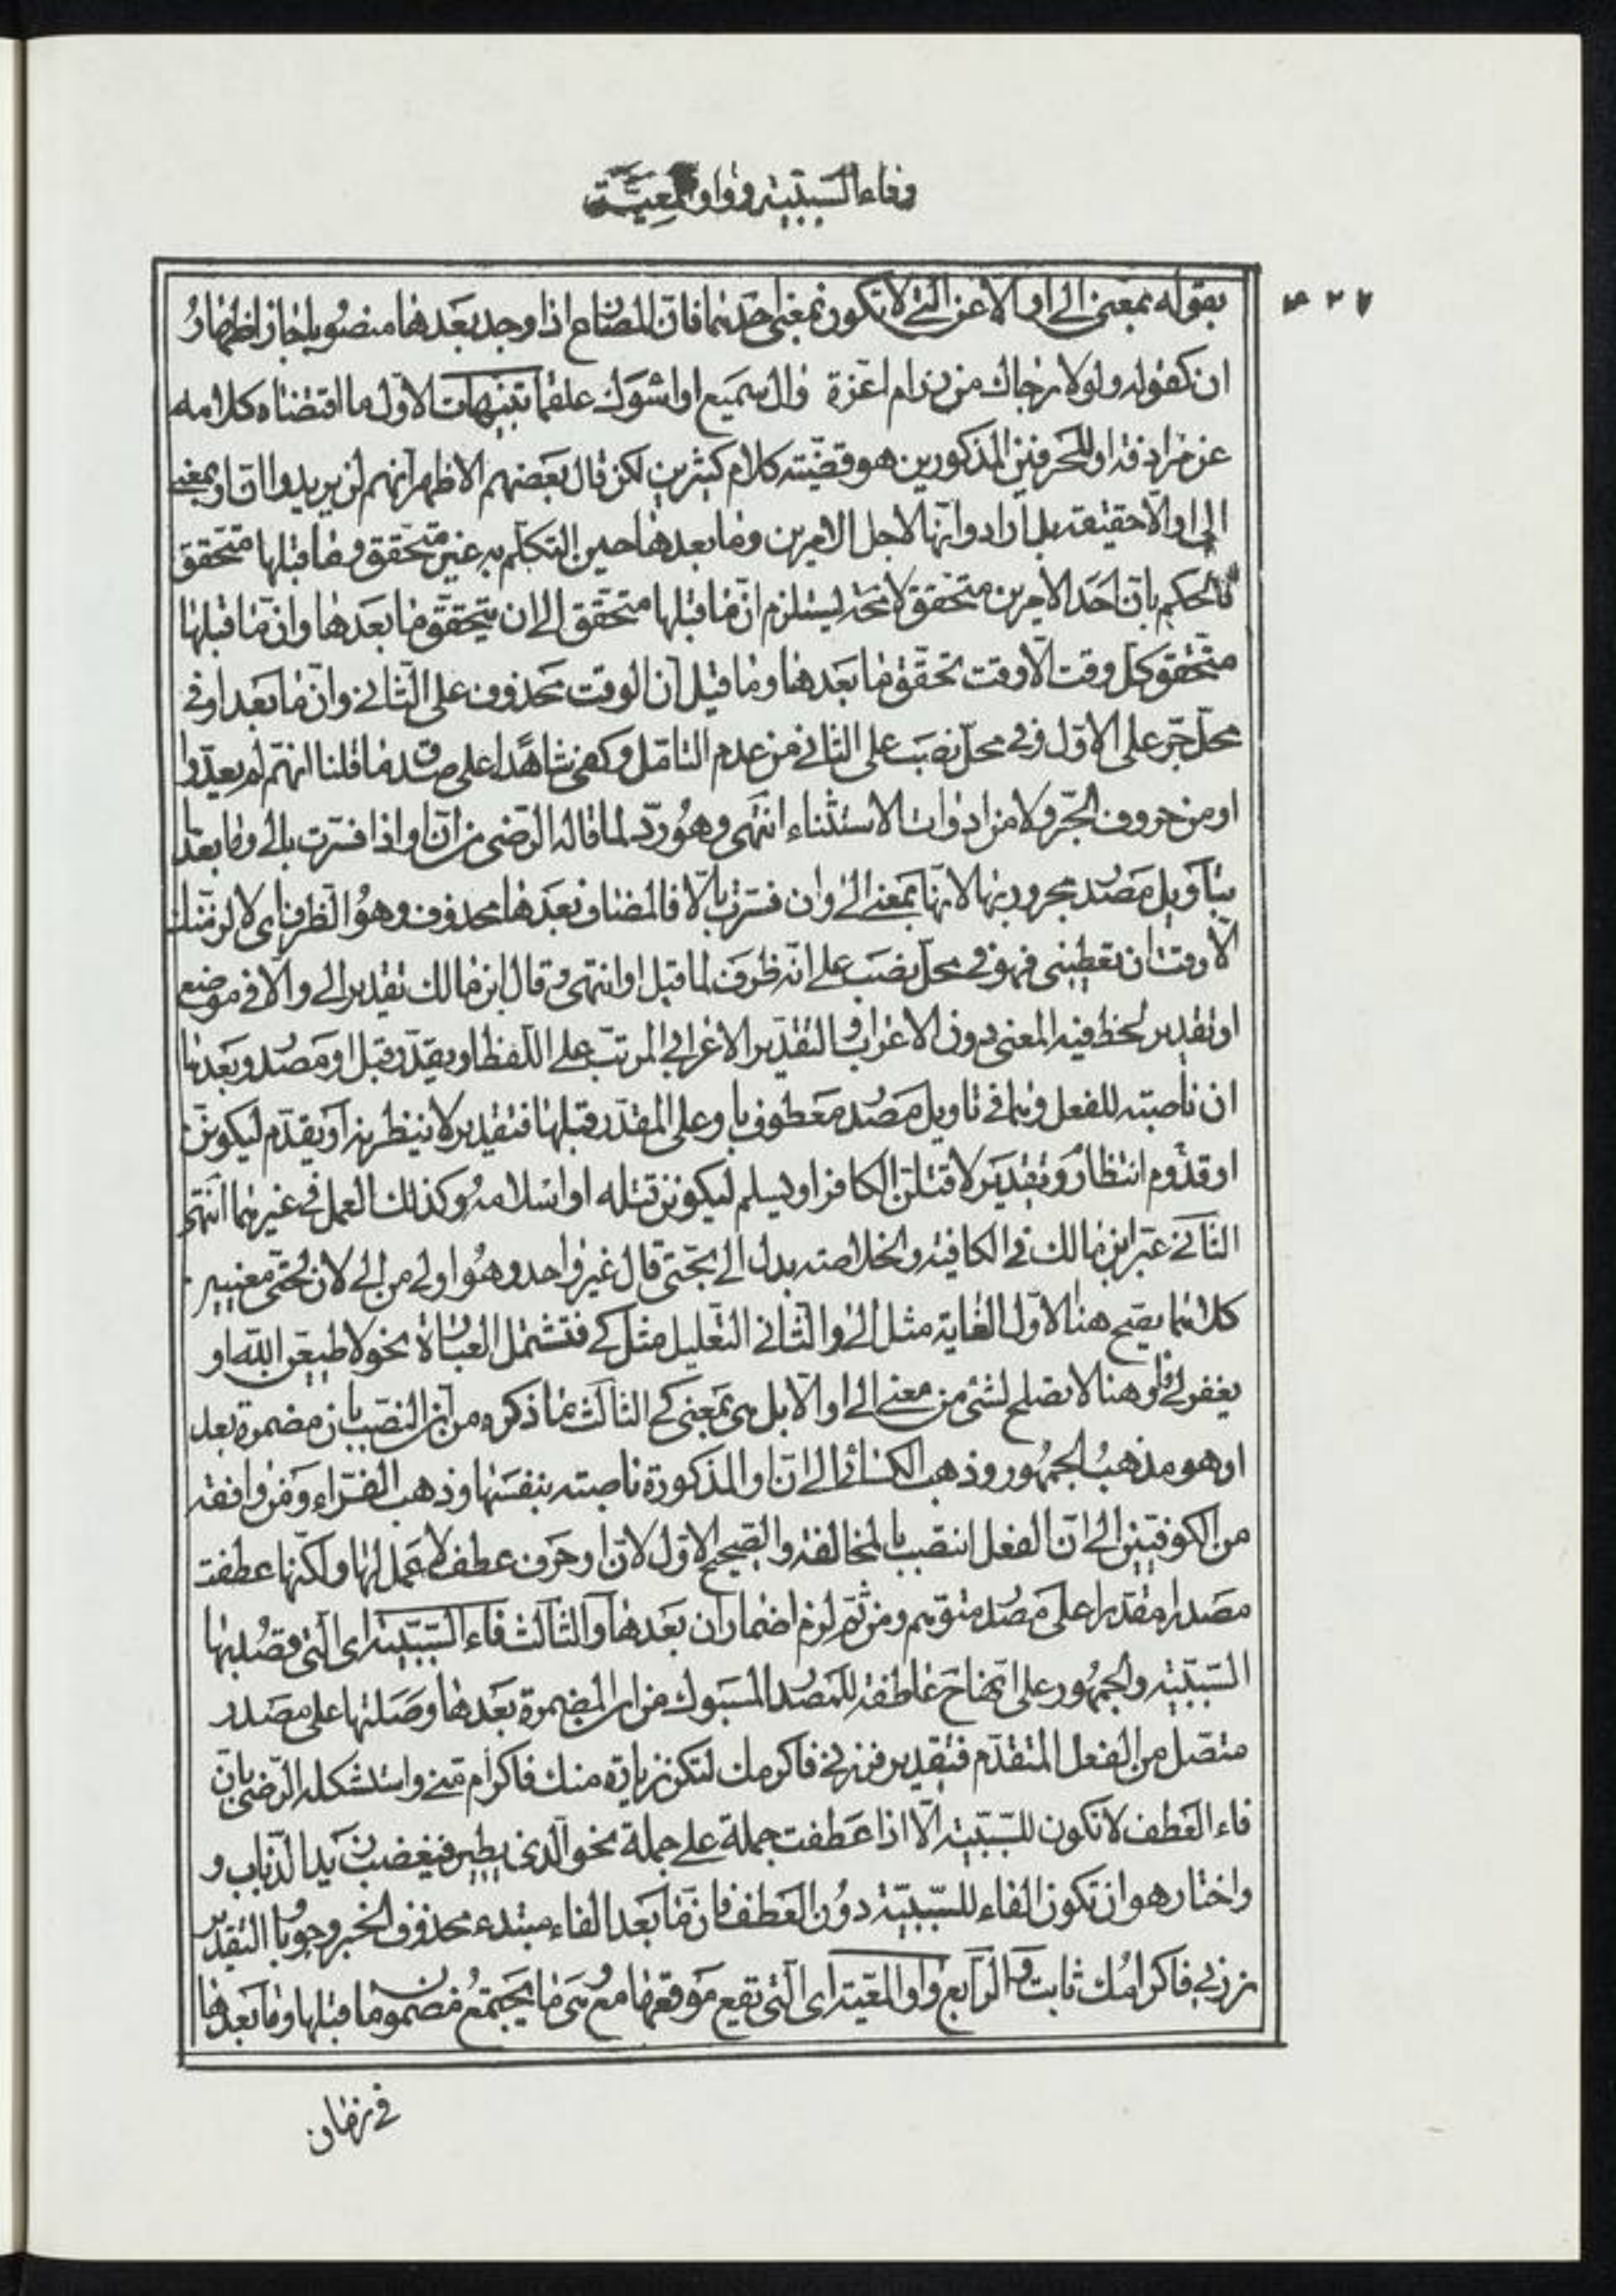 وفاء السّببيّة وواو المعيّة
٤٢٧
بقوله بمعنى الى او الّا عن الّتى لا تكون بمعنى احدهما فانّ المضارع اذا وجد بعدها منصوبا جاز اظهار
ان كقوله ولولا رجال من رزام اعزة وال سميع او اسوءك علقما تنبيهات الاوّل ما اقتضاه كلامه
عن مرادفة او للحرفين المذكورين هو قضيّة كلام كثيرين لكن قال بعضهم الاظهر انّهم لن يريدوا انّ او بمعنى
الى او الّا حقيقة بل ارادوا انّها لاحد الامرين وما بعدها حين التكلّم به غير متحقّق وما قبلها متحقّق
فالحكم بانّ احد الامرين متحقّق لا محة ليستلزم انّ ما قبلها متحقّق الى ان يتحقّق ما بعدها وانّ ما قبلها
متحقق كل وقت الّا وقت تحقّق ما بعدها وما قيل ان الوقت محذوف على الثانى وانّ ما بعد او فى
محلّ جرّ على الاوّل وفى محلّ نصب على الثانى من عدم التامّل وكفى شاهدا على صدق ما قلنا انّهم لم يعدّوا
او من حروف الجرّ ولا من ادوات الاستثناء انتهى وهو ردّ لما قاله الرّضى من انّ او اذا فسّرت بالى وما بعدها
بتاويل مصدر مجرور بها لانّها بمعنى الى وان فسّرت بالّا فالمضاف بعدها محذوف وهو الظرف اى لالزمنّك
الّا وقت ان تعطينى فهو فى محلّ نصب على انّه ظرف لما قبل او انتهى وقال ابن مالك تقدير الى والّا فى موضع
او تقدير لحظ فيه المعنى دون الاعراب والتقدير الاعرابى المرتّب على اللّفظ او يقدّر قبل او مصدر وبعدها
ان ناصبة للفعل وهما فى تاويل مصدر معطوف باو على المقدّر قبلها فتقدير لانتظرنه او يقدم ليكوننّ
او قدوم انتظار وتقدير لاقتلنّ الكافر او يسلم ليكوننّ قتله او اسلامه وكذلك العمل فى غيرهما انتهى
الثّانى عبّر ابن مالك فى الكافية والخلاصة بدل الى بحتّى قال غير واحد وهو اولى من الى لان لحتّى معنيين
كلاهما يصحّ هنا الاوّل الغاية مثل الى والثانى التّعليل مثل كى فتشتمل العبارة نحو لاطيعنّ اللّه او
يغفر لى فاو هنا لا تصلح لشئ من معنى الى او الّا بل هى بمعنى كى الثالث ما ذكره من انّ النّصب بان مضمرة بعد
او هو مذهب الجمهور وذهب الكسائى الى انّ او المذكورة ناصبة بنفسها وذهب الفرّاء ومن وافقه
من الكوفيّين الى انّ الفعل انتصب بالمخالفة والصّحيح الاوّل لانّ او حرف عطف لا عمل لها ولكنّها عطفت
مصدرا مقدّرا على مصدر متوهم ومن ثمّ لزم اضمار ان بعدها والثّالث فاء السّببيّة اى الّتى قصد بها
السّببيّة والجمهور على انها ح عاطفة للمصدر المسبوك من ان المضمرة بعدها وصلتها على مصدر
متصل من الفعل المتقدّم فتقدير زرنى فاكرمك لتكن زيارة منك فاكرام منى واستشكله الرّضى بانّ
فاء العطف لا تكون للسّببيّة الّا اذا عطفت جملة على جملة نحو الّذى يطير فيغضب زيد الذّباب و
واختار هو ان تكون الفاء للسّببيّة دون العطف فانّ ما بعد الفاء مبتدء محذوف الخبر وجوبا والتقدير
زرنى فاكرامك ثابت والرّابع واو المعيّة اى الّتى تقع موقعها مع وهى ما يجتمع مضمون ما قبلها وما بعدها
فى زمان